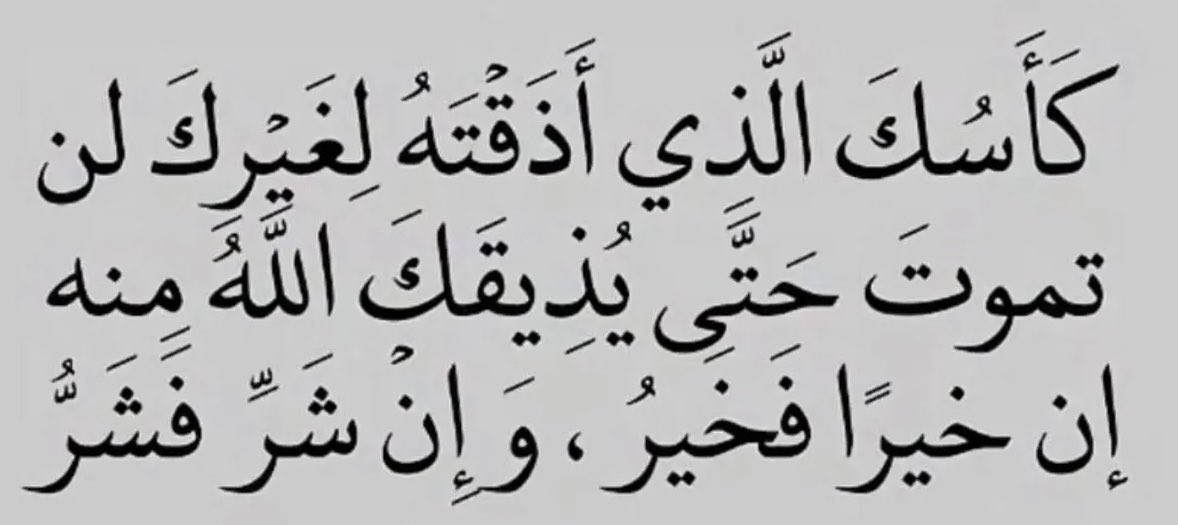 كَأَسُكَ الَّذي أَذَقْتَهُ لِغَيْرِكَ لن
تموتَ حَتَّى يُذِيقَكَ اللَّهُ مِنه
إن خيرًا فَخَيرُ ، وَ إِنْ شَرِّ فَشَرُّ